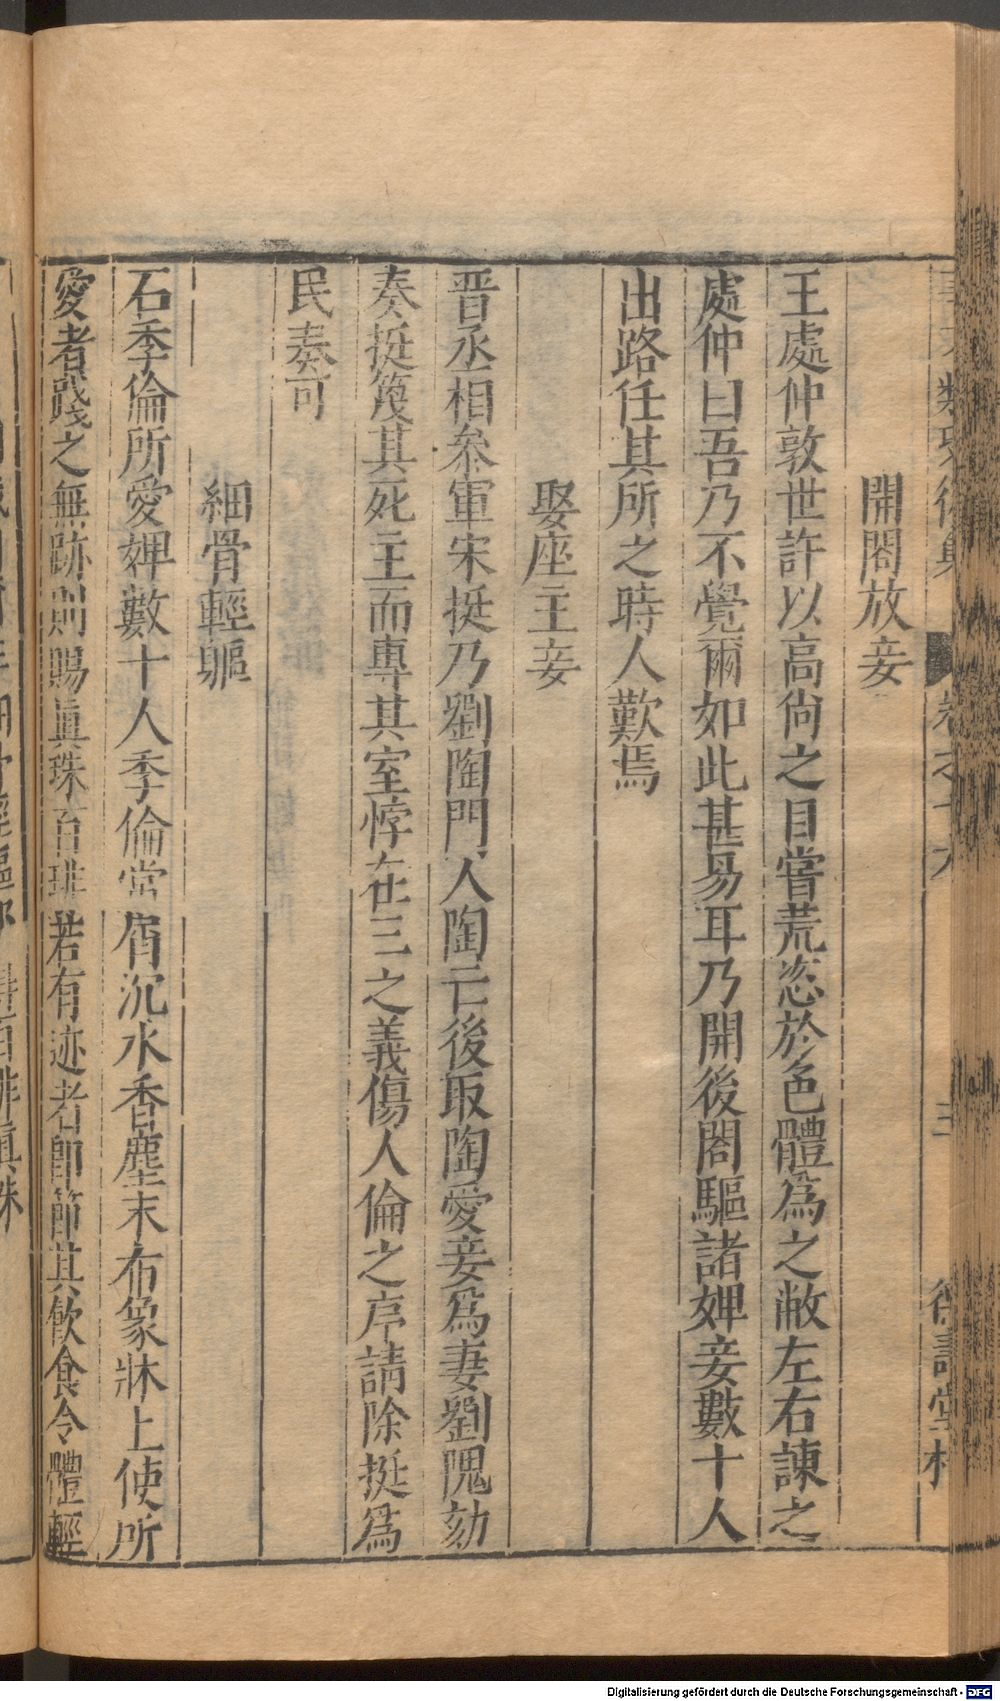 開閤放妾
王處仲敦世許以高尙之目嘗荒恣於色體爲之敝左右諫之
處仲曰吾乃不覺爾如此甚易耳乃開後閤驅諸婢妾數十人
出路任其所之時人歎焉
娶座主妾
晋丞相叅軍宋挺乃劉陶門人陶亡後取陶愛妾爲妻劉隗劾
奏挺篾其死主而專其室悖在三之義傷人倫之序請除挺爲
民奏可
細骨輕軀
石季倫所愛婢數十人季倫常屑沉水香塵末布象牀上使所
愛者踐之無跡則賜眞珠百琲若有迹者卽節其飮食令體輕
Digitalisierung gefördert durch die Deutsche Forschungsgemeinschaft - DFG